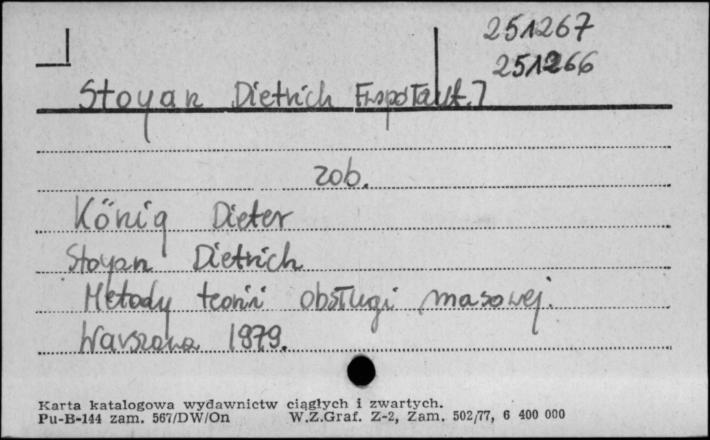 251267
251266
Stoyan Dietrich [współaut.]
zob.
König Dieter
Stoyan Dietrich
Metody teorii obsługi masowej.
Warszawa 1979.
Karta katalogowa wydawnictw ciągłych i zwartych.
Pu-B-144 zam. 567/DW/On W.Z.Graf. Z-2, Zam. 502/77, 6 400 000